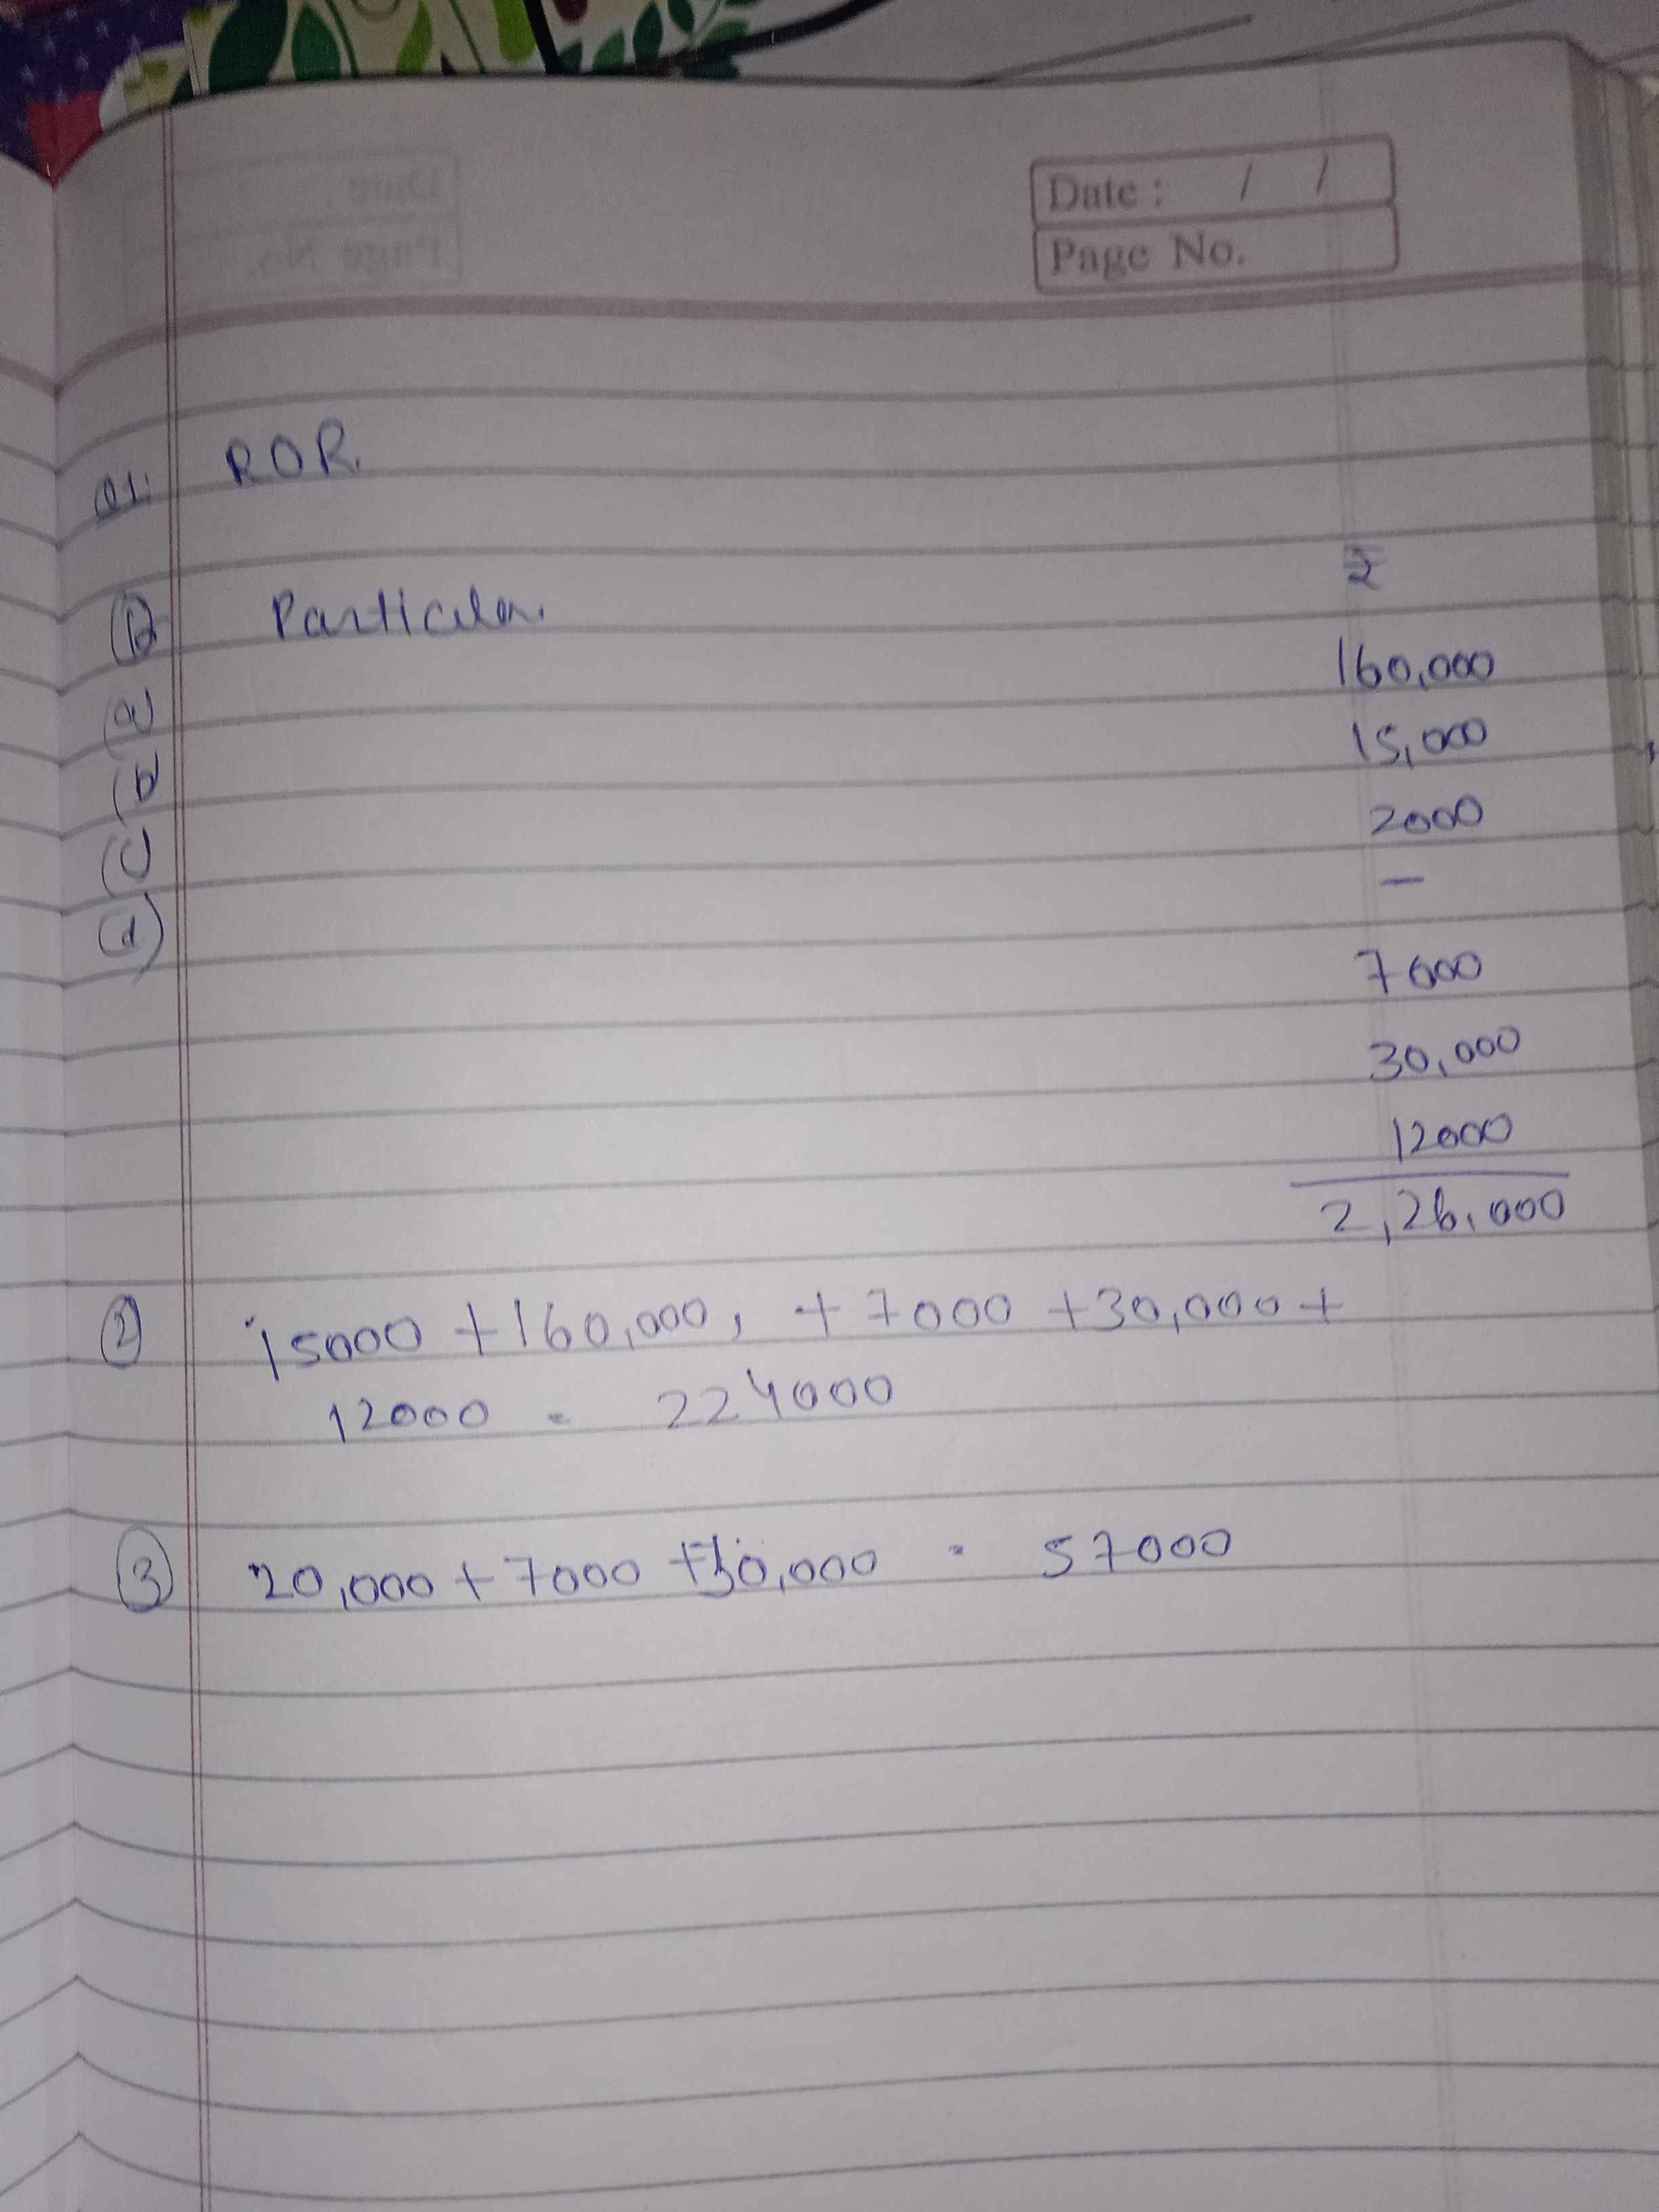 Date : / /
Page No.
Q1. ROR.
① Particular. ₹
(a) 160,000
(b) 15,000
(c) 2000
(d) —
7000
30,000
12000
2,26,000
② 15000 + 160,000, + 7000 + 30,000 +
12000 = 224000
③ 20,000 + 7000 + 30,000 = 57000